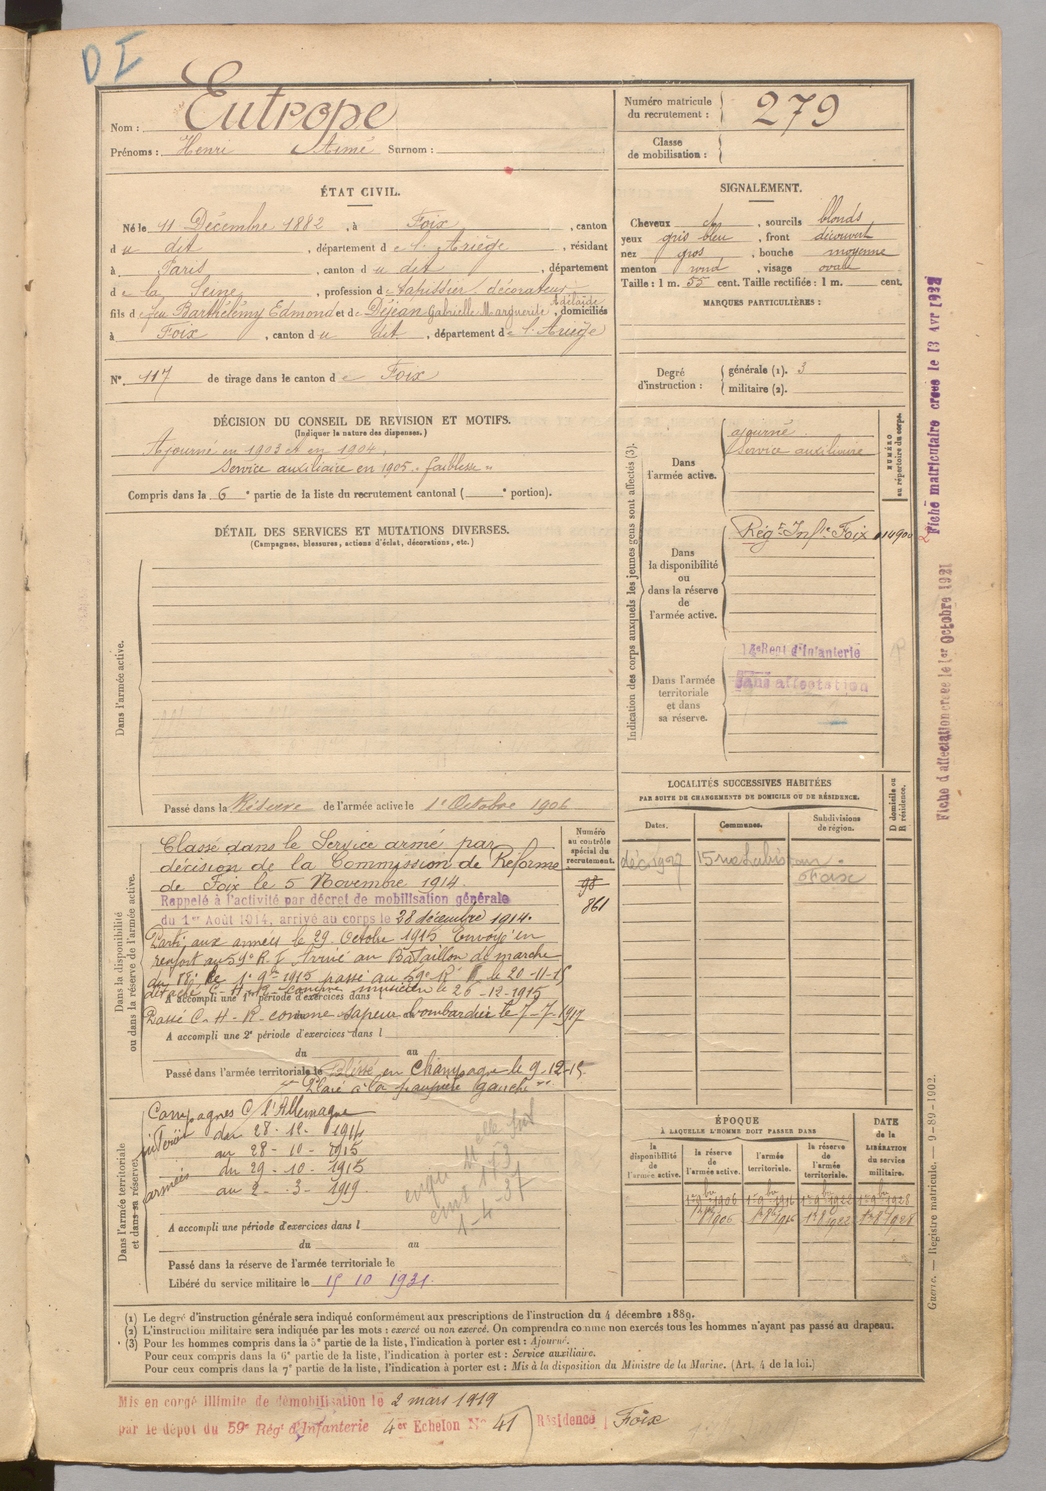 D I
Nom : Eutrope
Prénoms : Henri Aimé Surnom :
Numéro matricule du recrutement : 279
Classe de mobilisation :
ÉTAT CIVIL.
Né le 11 Décembre 1882, à Foix, canton
d u dit, département d e l'Ariège, résidant
à Paris, canton d u dit, département
d e la Seine, profession de tapissier décorateur
fils d e feu Barthélémy Edmond et de Déjean Gabrielle Marguerite Adélaïde, domiciliés
à Foix, canton d u dit, département d e l'Ariège
N° 117 de tirage dans le canton d e Foix
SIGNALEMENT.
Cheveux ch, sourcils blonds
yeux gris bleu, front découvert
nez gros, bouche moyenne
menton rond, visage ovale
Taille : 1 m. 55 cent. Taille rectifiée : 1 m. cent.
MARQUES PARTICULIÈRES :
Degré d'instruction : générale (1). 3
militaire (2).
DÉCISION DU CONSEIL DE REVISION ET MOTIFS.
(Indiquer la nature des dispenses.)
Ajourné en 1903 et en 1904,
Service auxiliaire en 1905 „ faiblesse „
Compris dans la 6e partie de la liste du recrutement cantonal ( e portion).
DÉTAIL DES SERVICES ET MUTATIONS DIVERSES.
(Campagnes, blessures, actions d'éclat, décorations, etc.)
Dans l'armée active.
Passé dans la Réserve de l'armée active le 1er Octobre 1906
Indication des corps auxquels les jeunes gens sont affectés (3).
NUMÉRO au répertoire du corps.
Dans l'armée active.
ajourné
Service auxiliaire
Dans la disponibilité ou dans la réserve de l'armée active.
Régt Inftie Foix 014900
Dans l'armée territoriale et dans sa réserve.
Regt d'Infanterie
Sans affectation
Dans la disponibilité ou dans la réserve de l'armée active.
Classé dans le Service armé par
décision de la Commission de Réforme
de Foix le 5 Novembre 1914.
Rappelé à l'activité par décret de mobilisation générale
du 1er Août 1914, arrivé au corps le 28 décembre 1914.
Parti aux armées le 29 Octobre 1915 Envoyé en
renfort au 59e R. I. Arrivé au Bataillon de marche
le 1er 9bre 1915 passé au 59e RI le 20-11-15
détaché C-H-R comme musicien le 26-12-1915
A accompli une 1re période d'exercices dans l
Passé C-H-R- comme sapeur bombardier le 7-7-1917
A accompli une 2e période d'exercices dans l
du au
Passé dans l'armée territoriale le Blessé en Champagne le 9-12-15
Plaie à la paupière gauche
Numéro au contrôle spécial du recrutement.
98
861
LOCALITÉS SUCCESSIVES HABITÉES
PAR SUITE DE CHANGEMENTS DE DOMICILE OU DE RÉSIDENCE.
Dates. Communes. Subdivisions de région. D domicile ou R résidence.
déc 1927 15 rue
Foix
Dans l'armée territoriale et dans sa réserve.
Campagnes C/ l'Allemagne
intérieur du 28-12-1914
au 28-10-1915
armées du 29-10-1915
au 2-3-1919
1-4-37
A accompli une période d'exercices dans l
du au
Passé dans la réserve de l'armée territoriale le
Libéré du service militaire le 15 10 1931
ÉPOQUE
À LAQUELLE L'HOMME DOIT PASSER DANS
DATE de la LIBÉRATION du service militaire.
la disponibilité de l'armée active. la réserve de l'armée active. l'armée territoriale. la réserve de l'armée territoriale.
1er 9bre 1906 1er 9bre 1916 1er 9bre 1922 1er 9bre 1928
1er 8bre 1906 1er 8bre 1916 1er 8bre 1922 1er 8bre 1928
(1) Le degré d'instruction générale sera indiqué conformément aux prescriptions de l'instruction du 4 décembre 1889.
(2) L'instruction militaire sera indiquée par les mots : exercé ou non exercé. On comprendra comme non exercés tous les hommes n'ayant pas passé au drapeau.
(3) Pour les hommes compris dans la 5e partie de la liste, l'indication à porter est : Ajourné.
Pour ceux compris dans la 6e partie de la liste, l'indication à porter est : Service auxiliaire.
Pour ceux compris dans la 7e partie de la liste, l'indication à porter est : Mis à la disposition du Ministre de la Marine. (Art. 4 de la loi.)
Mis en congé illimité de démobilisation le 2 mars 1919
par le dépot du 59e Régt d'Infanterie 4er Echelon N° 41 Résidence Foix
Fiche matriculaire créée le 13 Avr 1932
Fiche d'affectation créée le 1er Octobre 1921
Guerre. — Registre matricule. — 9-89-1902.